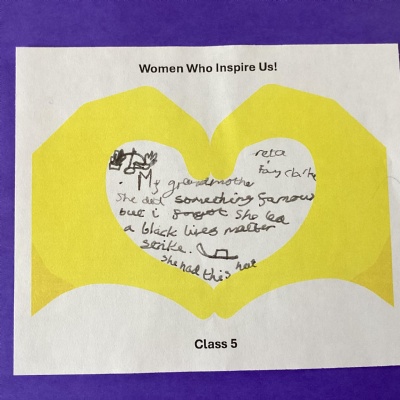 Women Who Inspire Us!
reta
My grandmother
She did something famous
but i forgot She led
a black lives matter
strike.
She had this hat
Class 5